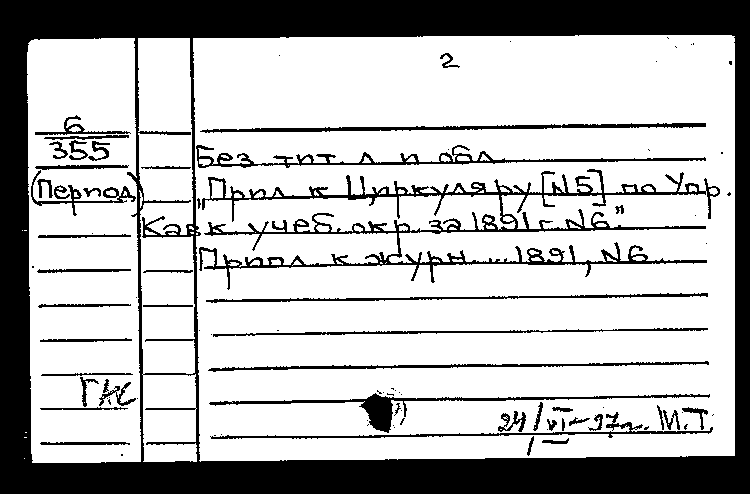 2
6
355
Без тит. л и обл
(Период)
"Прил к Циркуляру [N5] по Упр.
Кавк учеб. окр. за 1891 г. N6."
Прил. к журн ... 1891, N6
ГКС
24/VI-97г. М.Т.